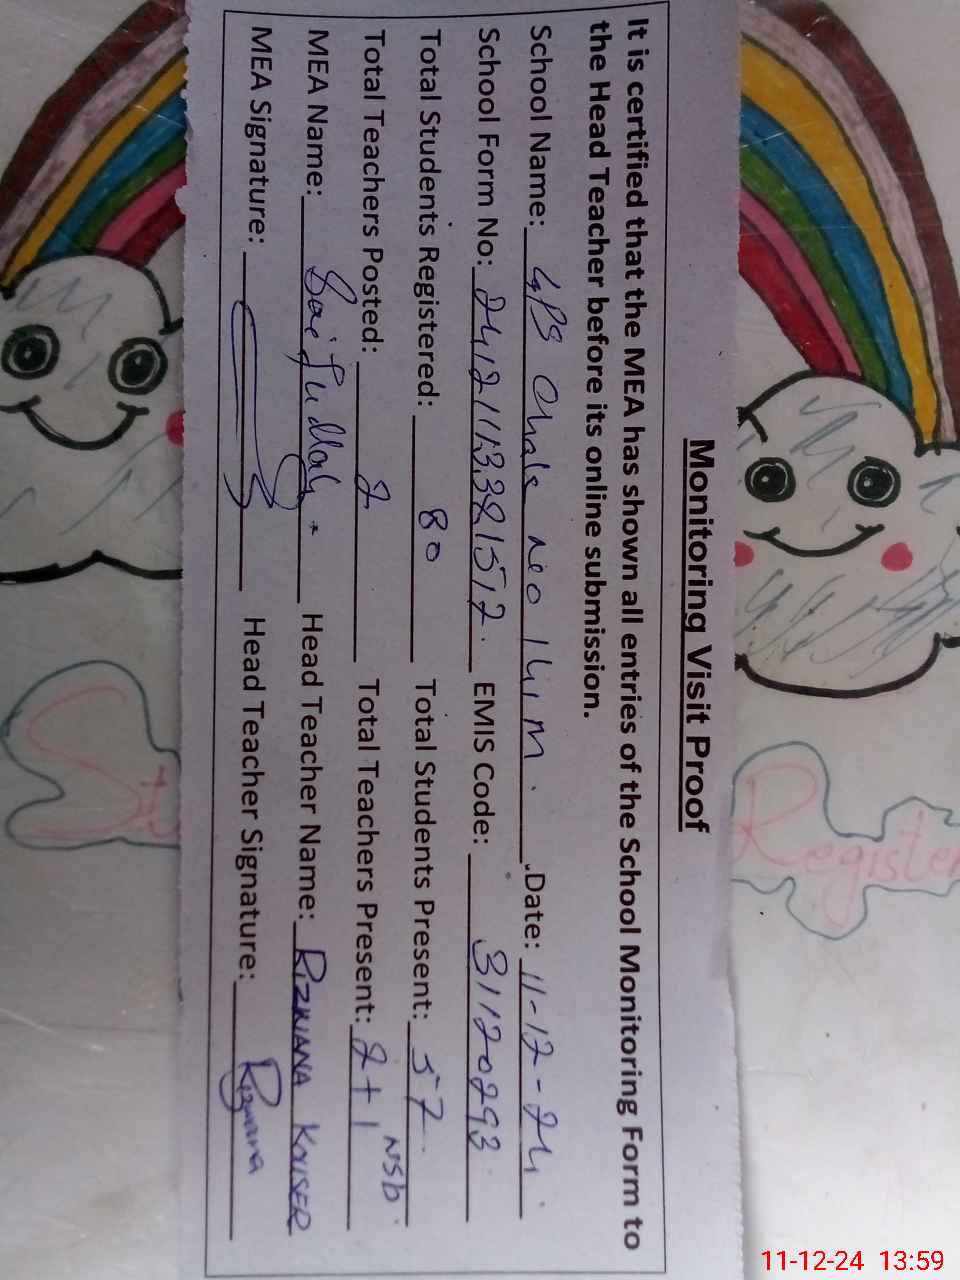 Monitoring Visit Proof
It is certified that the MEA has shown all entries of the School Monitoring Form to
the Head Teacher before its online submission.
School Name: GPS Chak no 141 M. Date: 11-12-24
School Form No: EMIS Code: 31120293
Total Students Registered: 80 Total Students Present: 57
Total Teachers Posted: 2 Total Teachers Present: 2+1 NSB
MEA Name: Saifullah Head Teacher Name: RIZWANA KOUSER
MEA Signature: Head Teacher Signature: Rizwana
Register
11-12-24 13:59